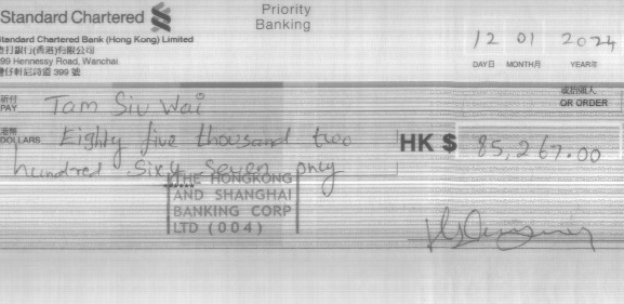 Standard Chartered
Priority
Banking
Standard Chartered Bank (Hong Kong) Limited
渣打銀行(香港)有限公司
399 Hennessy Road, Wanchai
灣仔軒尼詩道 399 號
12 01 2024
DAY日 MONTH月 YEAR年
祈付
PAY
Tam Siu Wai
或持票人
OR ORDER
港幣
DOLLARS
Eighty five thousand two
hundred Sixty Seven only
HK $ 85,267.00
THE HONGKONG
AND SHANGHAI
BANKING CORP
LTD (004)